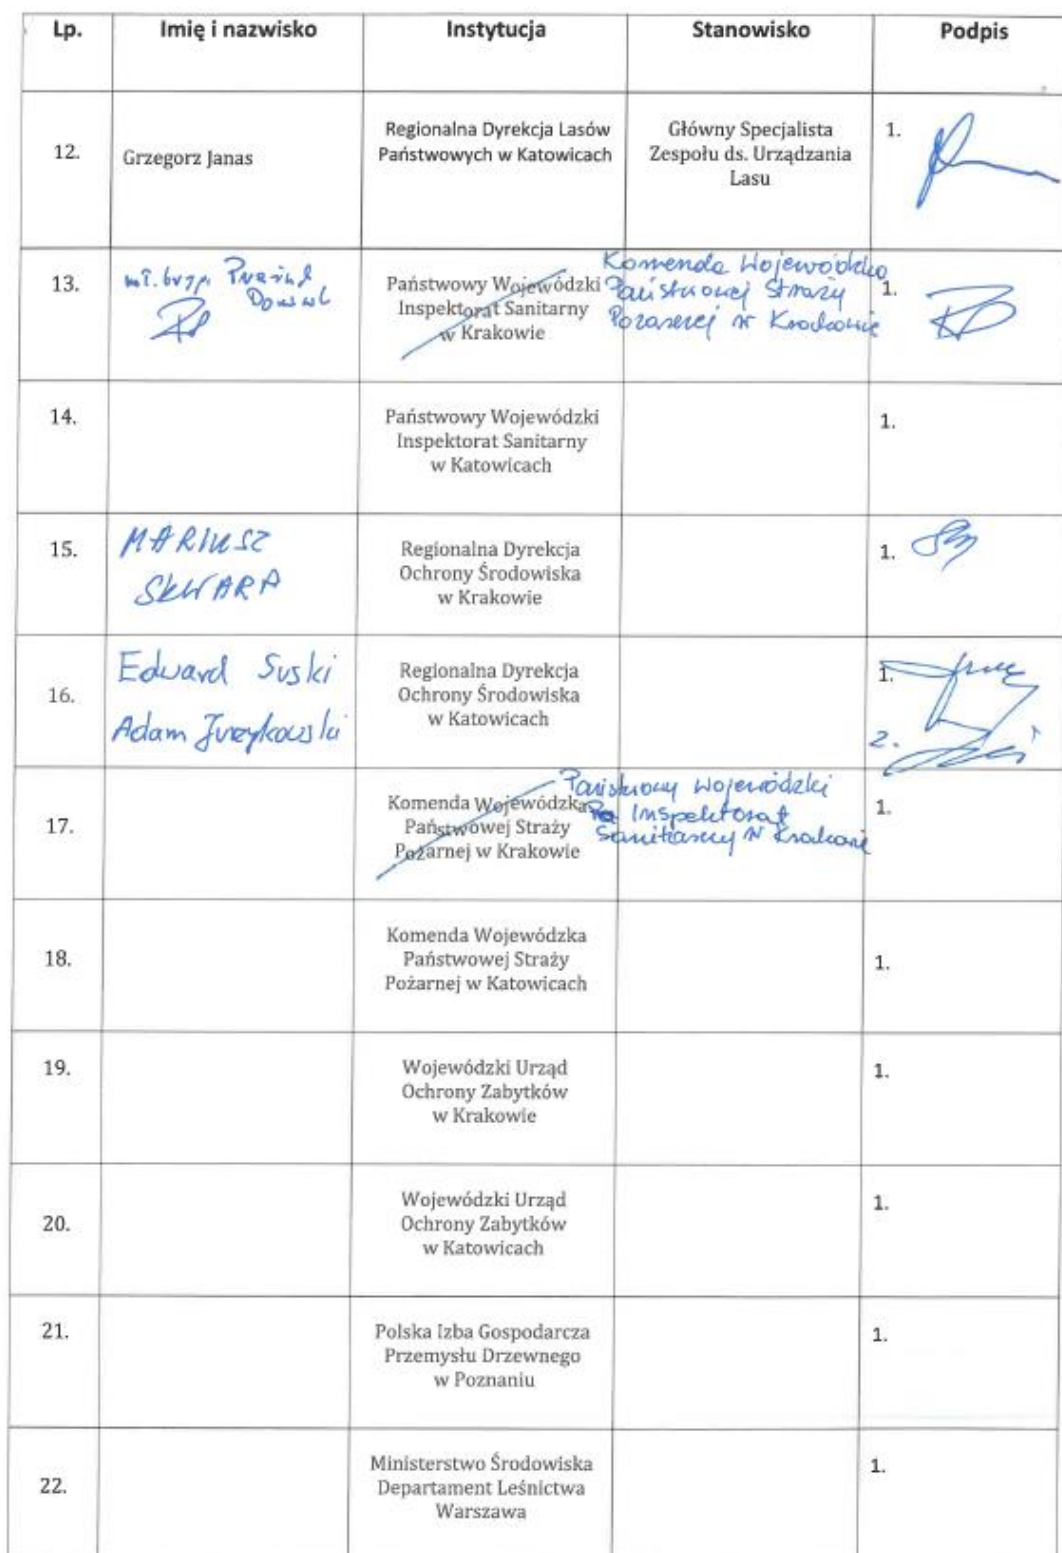 Lp. Imię i nazwisko Instytucja Stanowisko Podpis
12. Grzegorz Janas Regionalna Dyrekcja Lasów Państwowych w Katowicach Główny Specjalista Zespołu ds. Urządzania Lasu 1.
13. mł. bryg.
Państwowy Wojewódzki
Inspektorat Sanitarny
w Krakowie
Komenda Wojewódzka
Państwowej Straży
Pożarnej w Krakowie
1.
14.
Państwowy Wojewódzki
Inspektorat Sanitarny
w Katowicach
1.
15.
MARIUSZ
SKWARA
Regionalna Dyrekcja
Ochrony Środowiska
w Krakowie
1.
16.
Edward Suski
Adam
Regionalna Dyrekcja
Ochrony Środowiska
w Katowicach
1.
2.
17.
Komenda Wojewódzka
Państwowej Straży
Pożarnej w Krakowie
Państwowy Wojewódzki
Inspektorat
Sanitarny w Krakowie
1.
18.
Komenda Wojewódzka
Państwowej Straży
Pożarnej w Katowicach
1.
19.
Wojewódzki Urząd
Ochrony Zabytków
w Krakowie
1.
20.
Wojewódzki Urząd
Ochrony Zabytków
w Katowicach
1.
21.
Polska Izba Gospodarcza
Przemysłu Drzewnego
w Poznaniu
1.
22.
Ministerstwo Środowiska
Departament Leśnictwa
Warszawa
1.